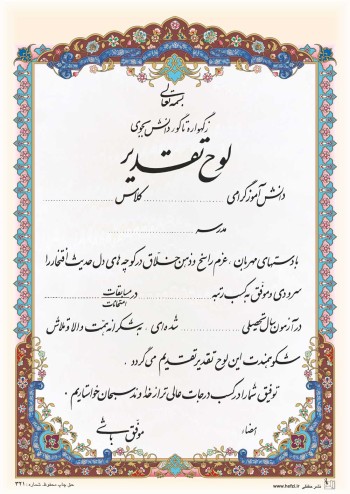 بسمه تعالی
زگهواره تا گور دانش بجوی
لوح تقدیر
دانش آموز گرامی ........ کلاس ........
مدرسه ........
با دستهای مهربان ، عزم راسخ و ذهن خلاق در کوچه های دل حدیث افتخار را
سرودی و موفق به کسب رتبه ........ در مسابقات
امتحانات
در آزمون سال تحصیلی ........ شده ای . به شکرانه همت والا و تلاش
شکوهمندت این لوح تقدیر تقدیم می گردد .
توفیق شما را در کسب درجات عالی تر از خداوند سبحان خواستاریم .
امضاء
موفق باشی
حق چاپ محفوظ. شماره : ۳۲۱
www.hefzi.ir